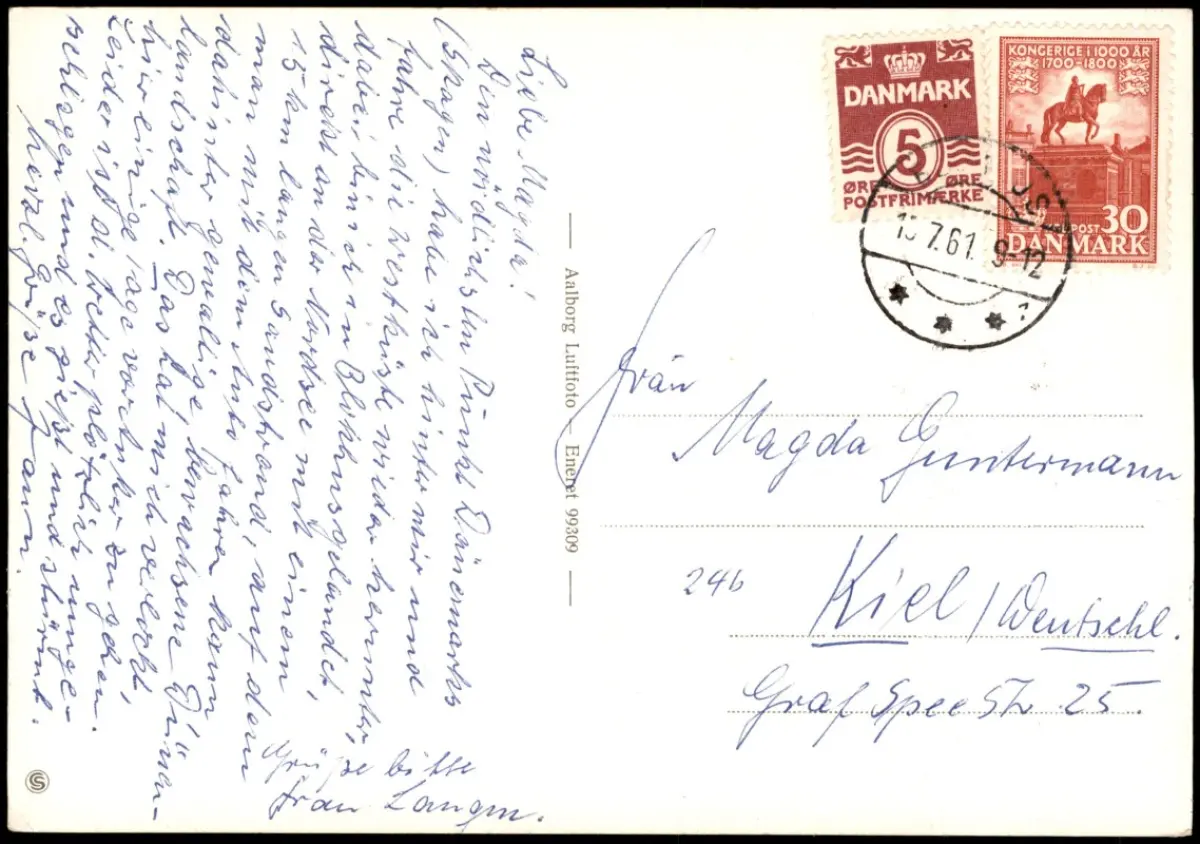 Liebe Magda!
Den nördlichsten Punkt Dänemarks
(Skagen) habe ich hinter mir und
fahre die Westküste wieder herunter,
dabei bin ich in Blokhus gelandet,
direkt an der Nordsee mit einem
15 km langen Sandstrand, auf dem
man mit dem Auto fahren kann
dahinter gewaltige, bewachsene Dünen-
landschaft. Das hat mich verlockt,
hier einige Tage vor Anker zu gehen.
Leider ist d. Wetter plötzlich umge-
schlagen und es gießt und stürmt.
Herzl. Grüße
Grüße bitte
Frau Langm.
Aalborg Luftfoto — Eneret 99309
DANMARK
5
ØRE ØRE
POSTFRIMÆRKE
KONGERIGE i 1000 ÅR
1700-1800
POST 30
DANMARK
7.61. 9-12
Frän
Magda Guntermann
24b
Kiel / Deutschl.
Graf Spee Str 25.